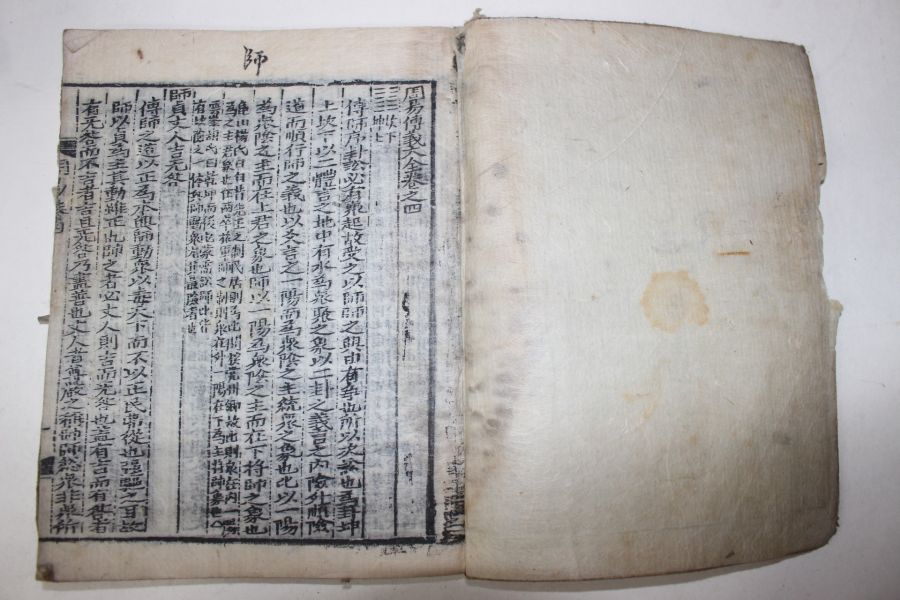 師
周易傳義大全卷之四
坎下
坤上
傳師序卦訟必有衆起故受之以師師之興由有爭也所以次訟也爲卦坤
上坎下以二體言之地中有水爲衆聚之象以二卦之義言之內險外順險
道而順行師之義也以爻言之一陽而爲衆陰之主統衆之象也比以一陽
爲衆陰之主而在上君之象也師以一陽爲衆陰之主而在下將帥之象也
師貞丈人吉无咎
傳師之道以正爲本興師動衆以毒天下而不以正民弗從也强驅之耳故
師以貞爲主其動雖正也帥之者必丈人則吉而无咎也蓋有吉而有咎者
有无咎而不吉者吉且无咎乃盡善也丈人者尊嚴之稱帥師總衆非衆所